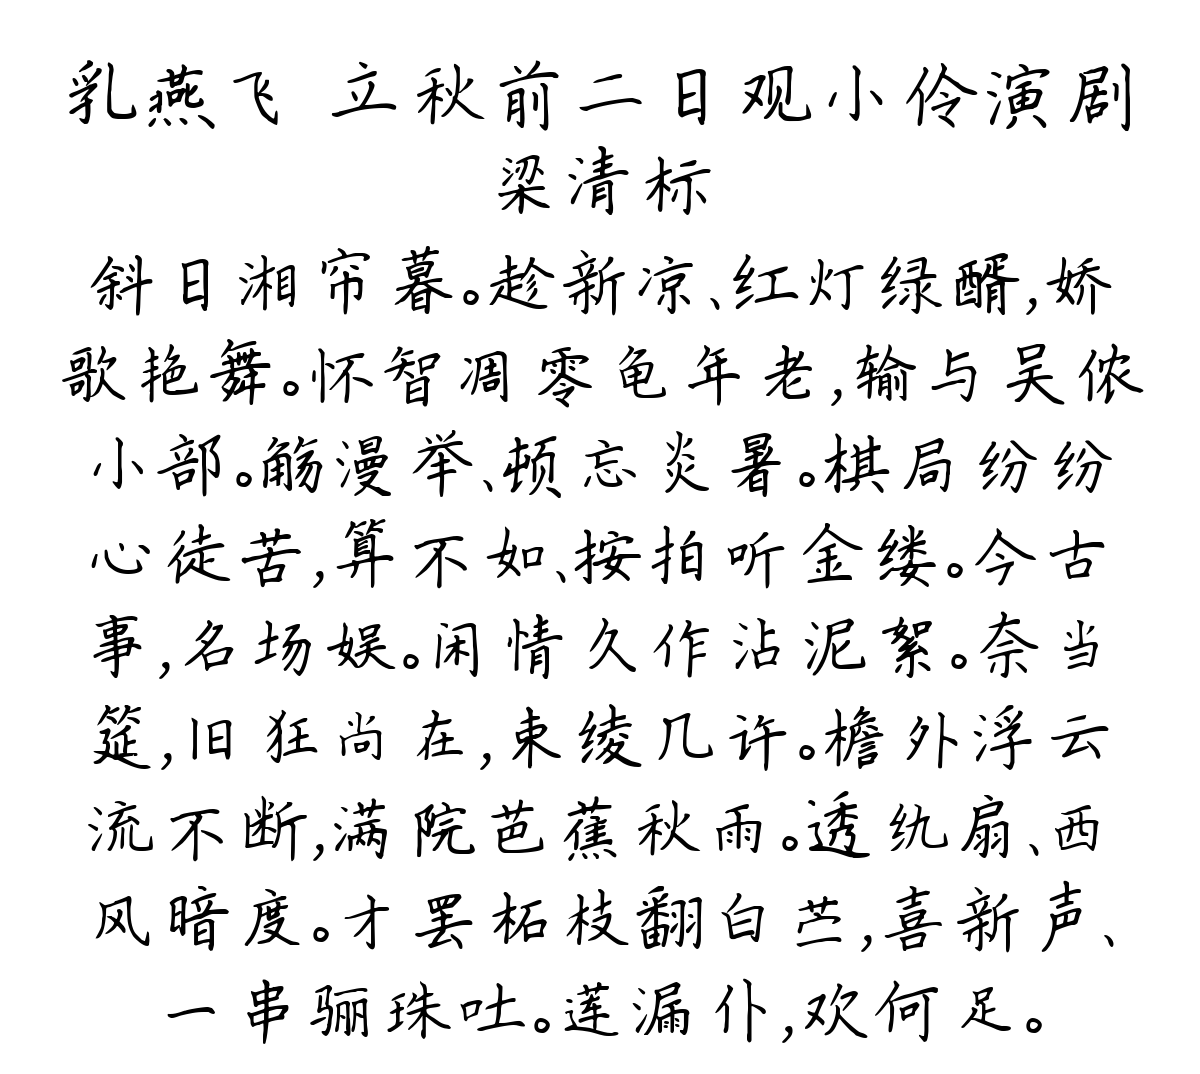 乳燕飞 立秋前二日观小伶演剧
梁清标
斜日湘帘暮。趁新凉、红灯绿醑,娇
歌艳舞。怀智凋零龟年老,输与吴侬
小部。觞漫举、顿忘炎暑。棋局纷纷
心徒苦,算不如、按拍听金缕。今古
事,名场娱。闲情久作沾泥絮。奈当
筵,旧狂尚在,束绫几许。檐外浮云
流不断,满院芭蕉秋雨。透纨扇、西
风暗度。才罢柘枝翻白苎,喜新声、
一串骊珠吐。莲漏仆,欢何足。